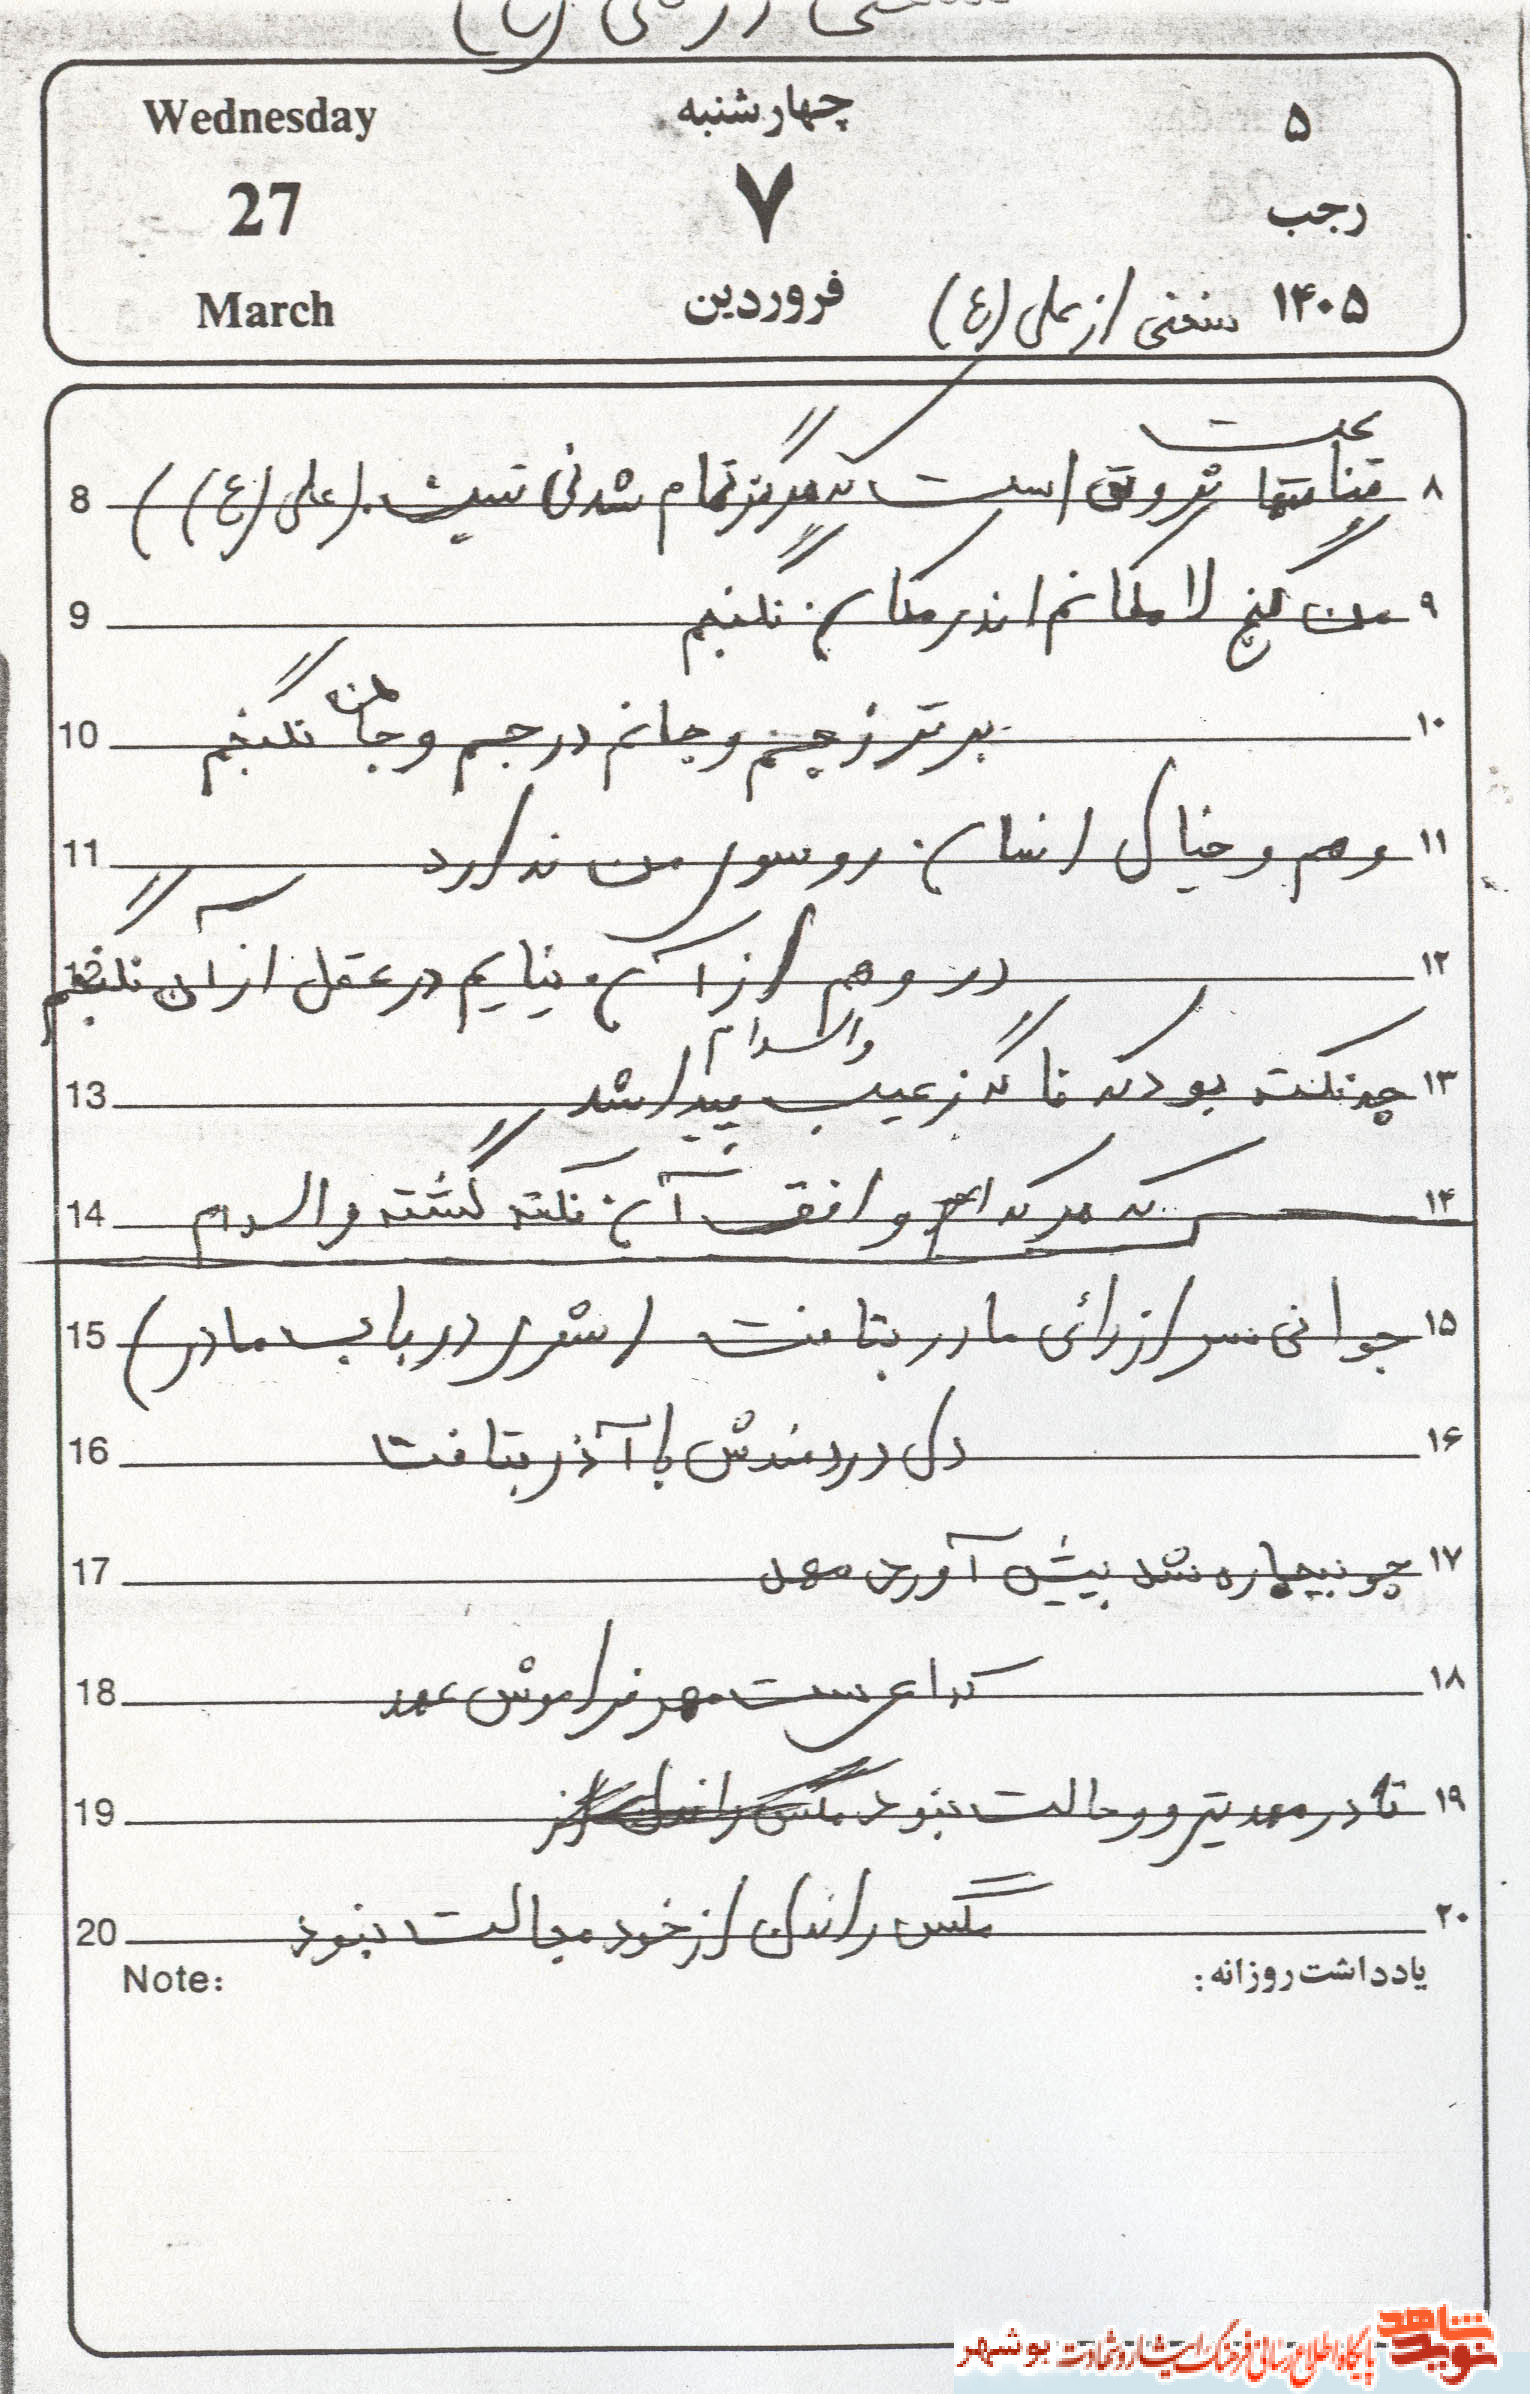 سخنی از علی (ع)
Wednesday چهارشنبه ۵
27 ۷ رجب
March فروردین سخنی از علی (ع) ۱۴۰۵
8 قناعت تنها ثروتی است که هرگز تمام شدنی نیست. (علی (ع)) ۸
9 من گنج لا مکانم اندر مکان نگنجم ۹
10 برتر ز جسم و جانم در جسم و جان نگنجم ۱۰
11 وهم و خیال انسان رو سوی من ندارد ۱۱
12 در وهم از آن نیایم در عقل از آن نگنجم ۱۲
والسلام
13 چه نکته بود که ناگه ز غیب پیدا شد ۱۳
14 که هر که واقف آن نکته گشته والسلام ۱۴
15 جوانی سر از رائی مادر بتافت (شعری در باب مادر) ۱۵
16 دل دردمندش با آذر بتافت ۱۶
17 چو بیچاره شد پیش آورد مهد ۱۷
18 که ای سست مهر فراموش عهد ۱۸
19 تا در مهد نیرو و حالت نبود مگس راندن از ۱۹
20 مگس راندن از خود مجالت نبود ۲۰
Note: یادداشت روزانه:
نوید شاهد
پایگاه اطلاع رسانی فرهنگ ایثار و شهادت بوشهر